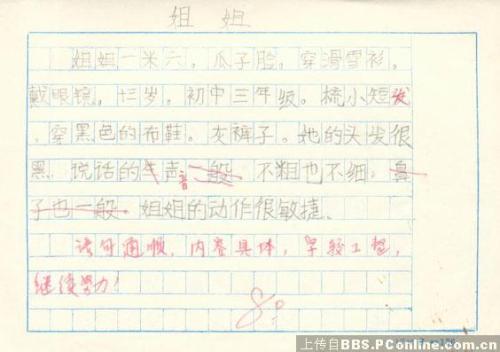 姐姐
姐姐一米六，瓜子脸，穿滑雪衫，
戴眼镜，十三岁，初中三年级。梳小短发
，穿黑色的布鞋。灰裤子。她的头发很
黑，说话的声音一般，不粗也不细，鼻
子也一般。姐姐的动作很敏捷。
语句通顺，内容具体，字较工整，
继续努力！
上传自BBS.PConline.com.cn